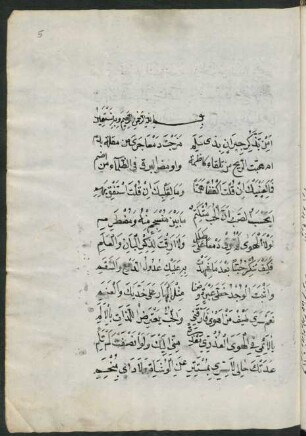 5
بسم الله الرحمن الرحيم وبه نستعين
امن تذكر جيران بذي سلم مزجت دمعا جرى من مقلة بدم
ام هبت الريح من تلقاء كاظمة واومض البرق في الظلماء من اضم
فما لعينيك ان قلت اكففا همتا وما لقلبك ان قلت استفق يهم
ايحسب الصب ان الحب منكتم ما بين منسجم منه ومضطرم
لولا الهوى لم ترق دمعا على طلل ولا ارقت لذكر البان والعلم
فكيف تنكر حبا بعد ما شهدت به عليك عدول الدمع والسقم
واثبت الوجد خطي عبرة وضنى مثل البهار على خديك والعنم
نعم سرى طيف من اهوى فارقني والحب يعترض اللذات بالالم
يا لائمي في الهوى العذري معذرة مني اليك ولو انصفت لم تلم
عدتك حالي لا سري بمستتر عن الوشاة ولا دائي بمنحسم